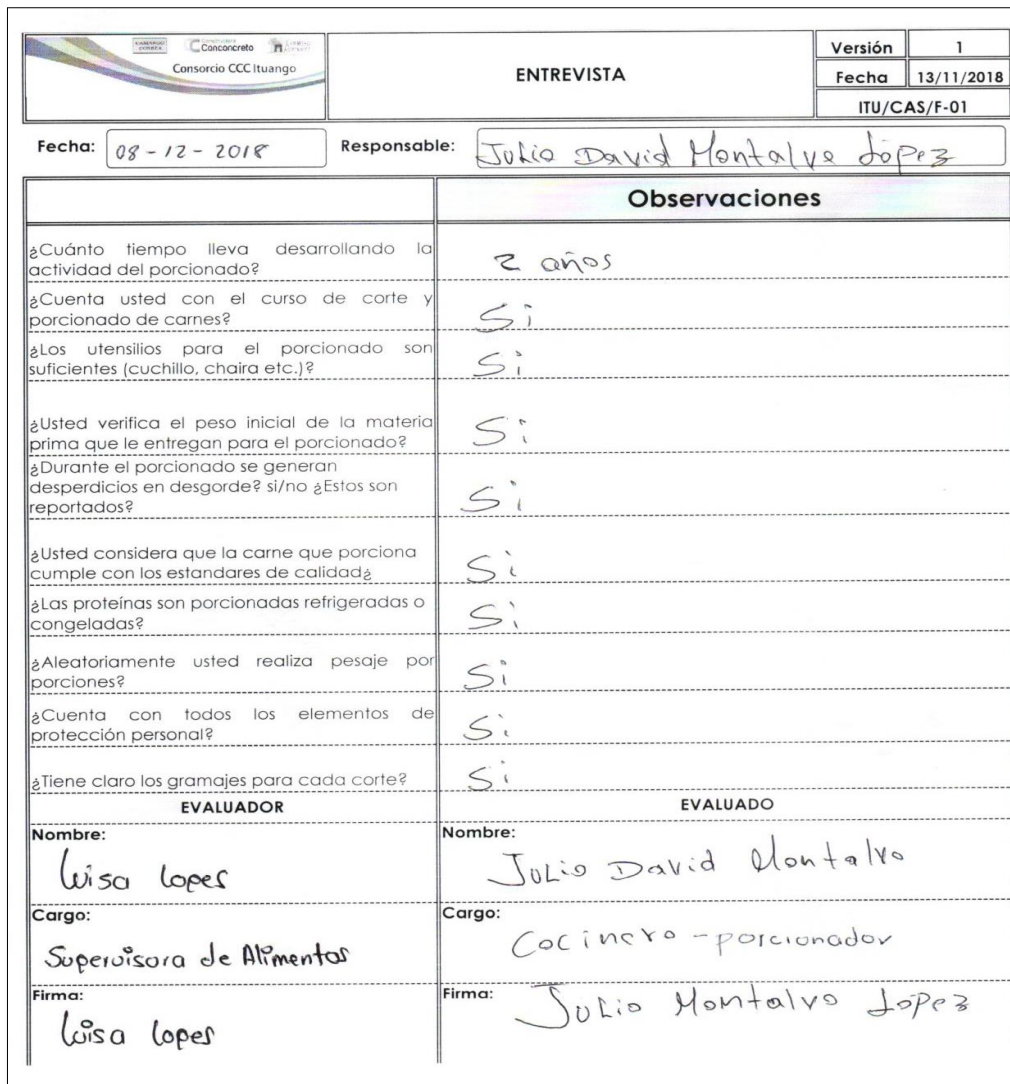 Conconcreto
Consorcio CCC Ituango
ENTREVISTA
Versión 1
Fecha 13/11/2018
ITU/CAS/F-01
Fecha: 08-12-2018 Responsable: Julio David Montalvo López
Observaciones
¿Cuánto tiempo lleva desarrollando la
actividad del porcionado?
2 años
¿Cuenta usted con el curso de corte y
porcionado de carnes?
Si
¿Los utensilios para el porcionado son
suficientes (cuchillo, chaira etc.)?
Si
¿Usted verifica el peso inicial de la materia
prima que le entregan para el porcionado?
Si
¿Durante el porcionado se generan
desperdicios en desgorde? si/no ¿Estos son
reportados?
Si
¿Usted considera que la carne que porciona
cumple con los estandares de calidad¿
Si
¿Las proteínas son porcionadas refrigeradas o
congeladas?
Si
¿Aleatoriamente usted realiza pesaje por
porciones?
Si
¿Cuenta con todos los elementos de
protección personal?
Si
¿Tiene claro los gramajes para cada corte?
Si
EVALUADOR EVALUADO
Nombre: Nombre:
Luisa Lopes Julio David Montalvo
Cargo: Cargo:
Supervisora de Alimentos Cocinero - porcionador
Firma: Firma:
Luisa Lopes Julio Montalvo López